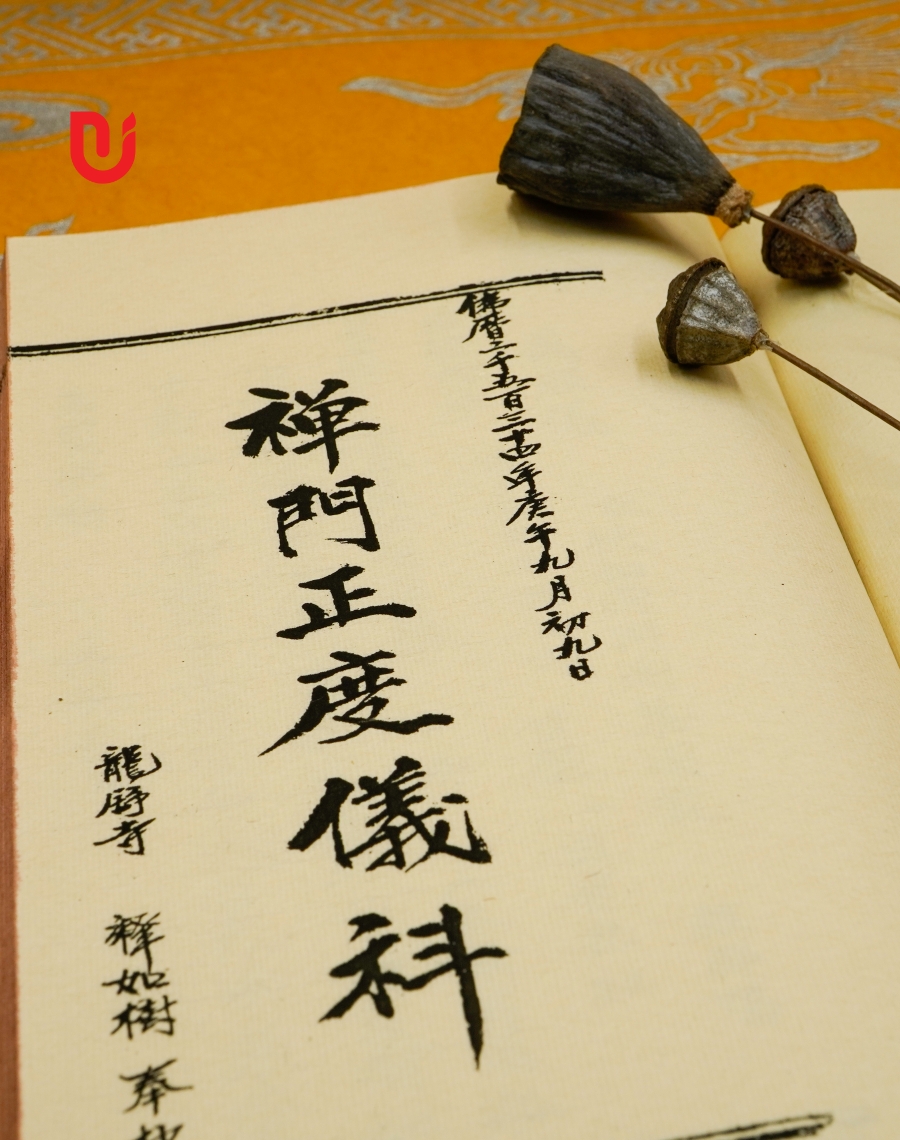 佛曆二千五百三十四年庚午九月初九日
禅門正度儀科
龍舒寺 釋如樹 奉